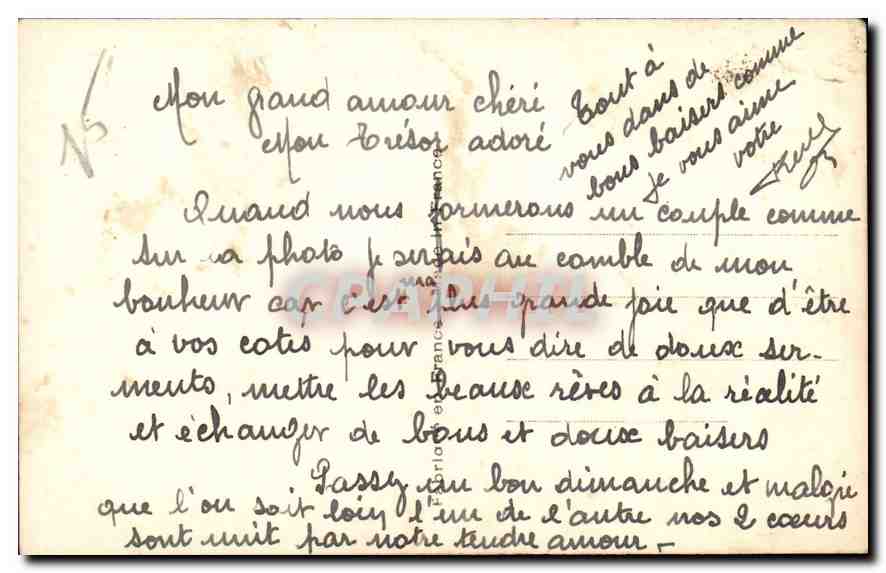 N°
Mon grand amour chéri
Mon Trésor adoré
Quand nous formerons un couple comme
sur la photo je serais au comble de mon
bonheur car c'est ma plus grande joie que d'être
à vos cotés pour vous dire de doux ser-
ments, mettre les beaux rêves à la réalité
et échanger de bons et doux baisers
Passez un bon dimanche et malgré
que l'on soit loin l'un de l'autre nos 2 cœurs
sont unit par notre tendre amour -
Tout à
vous dans de
bons baisers comme
je vous aime
votre
Fabriqué en France Made in France
CPAPHIL